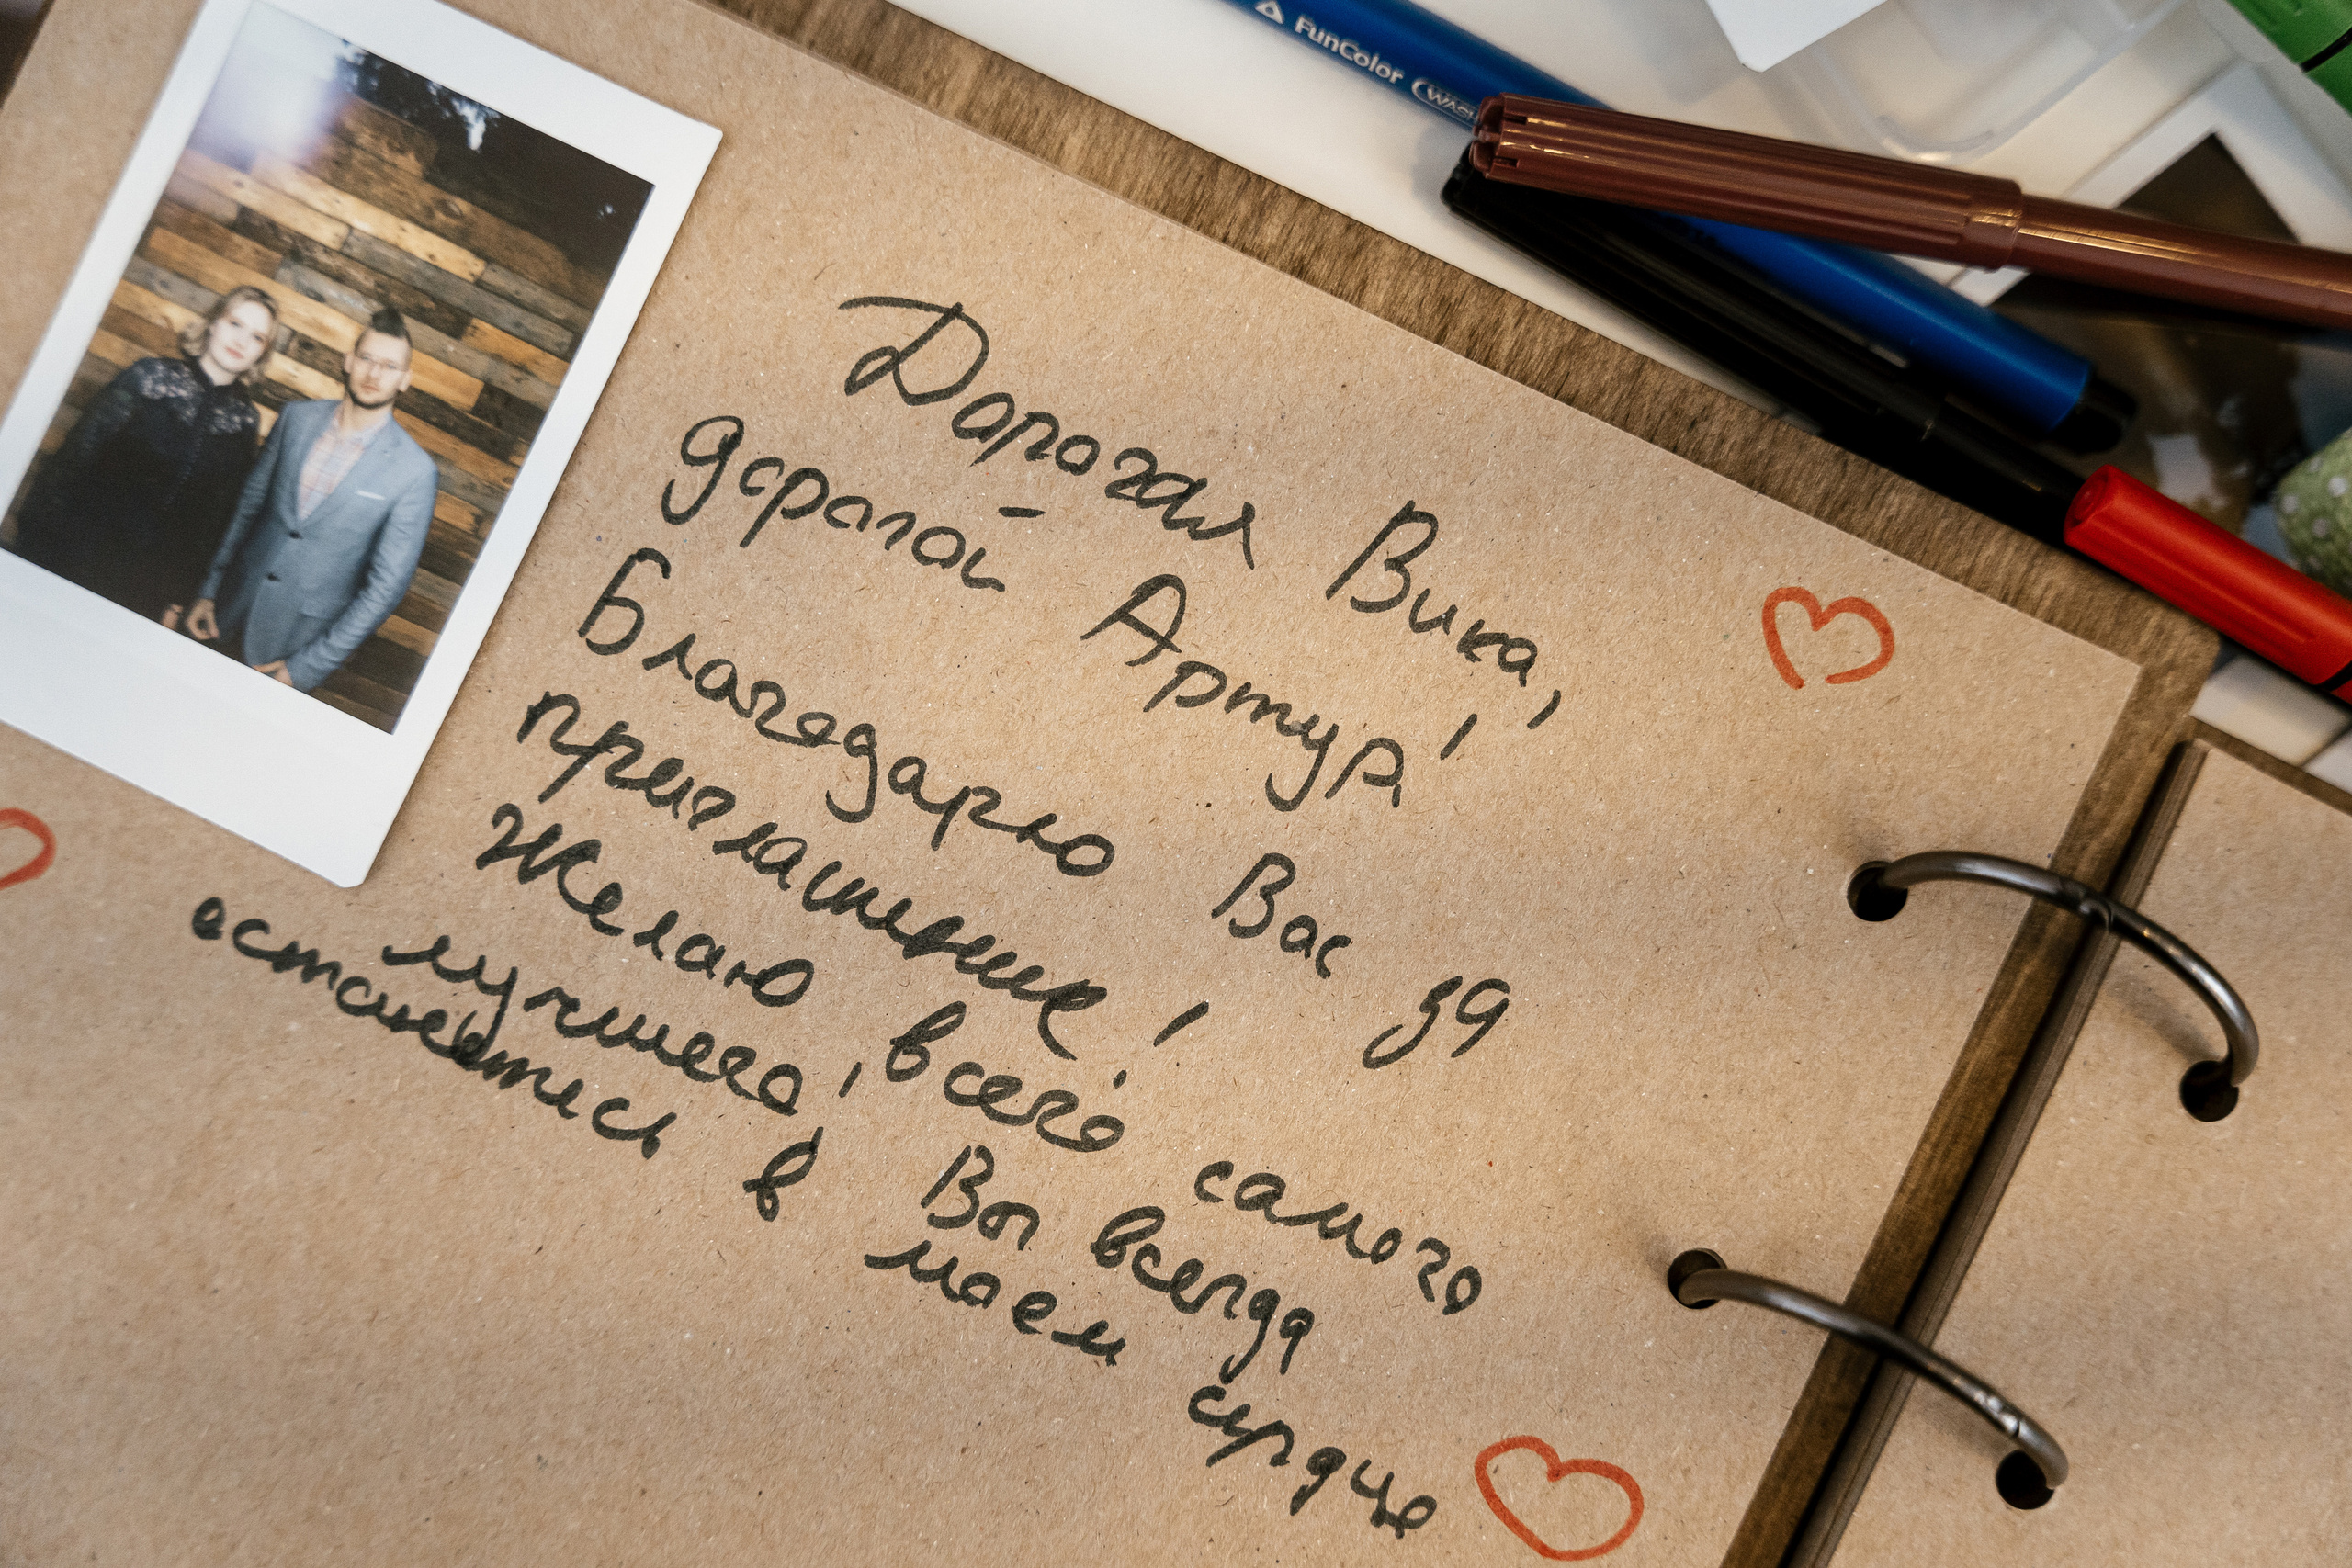 FunColor
Дорогая Вика,
дорогой Артур!
Благодарю Вас за
приглашение!
Желаю всего самого
лучшего! Вы всегда
останетесь в моем сердце